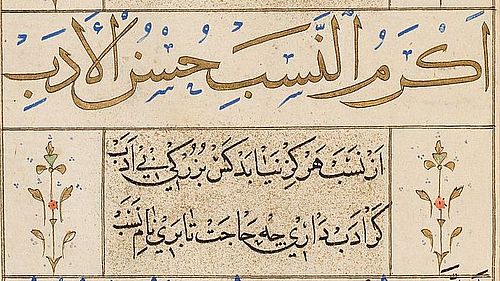 اَكْرَمُ النَّسَبِ حُسْنُ الْأَدَبِ
از نسب هرگز نیابد کس بزرگی بی ادب
گر ادب داری چه حاجت تا بری نام نسب